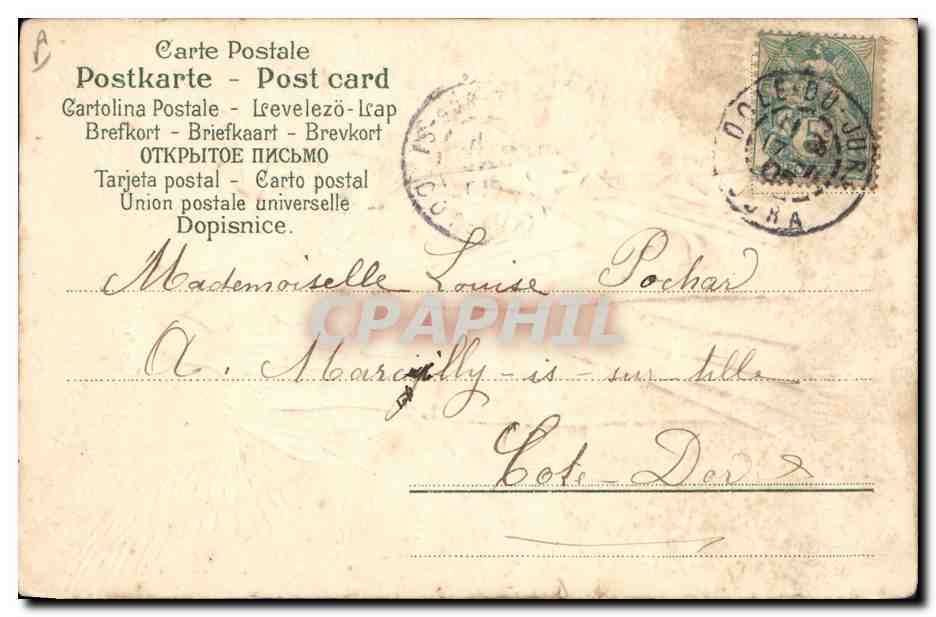 Carte Postale
Postkarte - Post card
Cartolina Postale - Levelezö-Lap
Brefkort - Briefkaart - Brevkort
ОТКРЫТОЕ ПИСЬМО
Tarjeta postal - Carto postal
Union postale universelle
Dopisnice.
DOLE-DU-JURA
JURA
5
Mademoiselle Louise Pochar
CPAPHIL
A. Marcilly-is-sur-tille
Cote-Dor